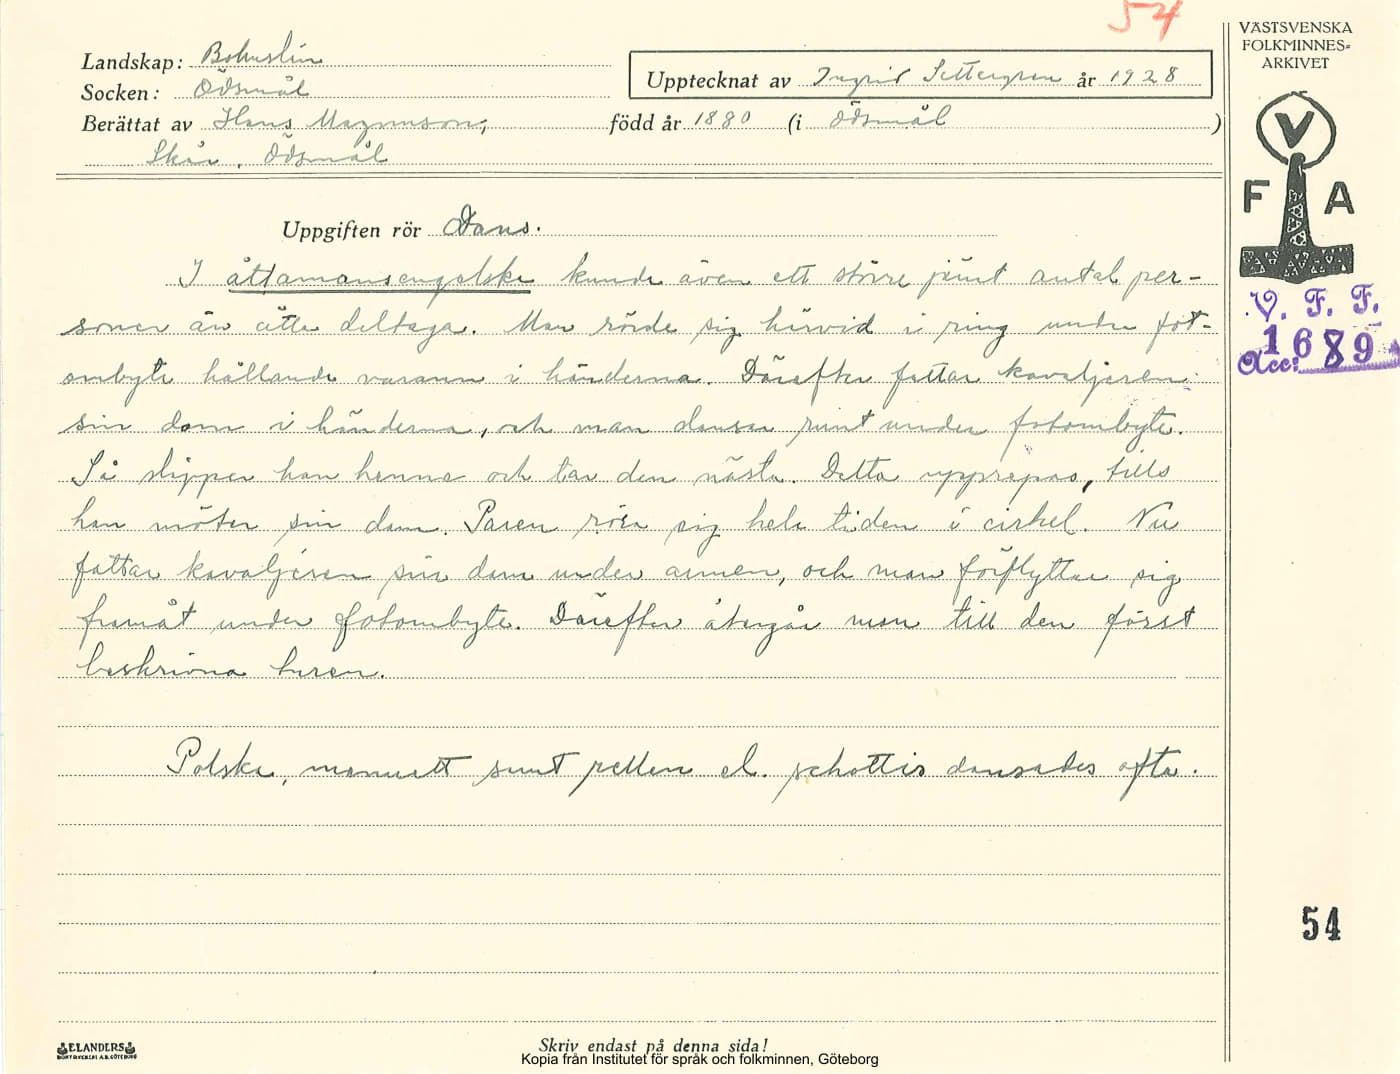 54
VÄSTSVENSKA
FOLKMINNES=
ARKIVET
Landskap: Bohuslän
Upptecknat av Ingrid Settergren år 1928
Socken: Ödsmål
Berättat av Hans Magnusson, född år 1880 (i Ödsmål)
Skår, Ödsmål
V
F A
Uppgiften rör Dans.
I åttamansengelska kunde även ett större jämt antal per-
soner än åtta deltaga. Man rörde sig härvid i ring under fot-
ombyte hållande varann i händerna. Därefter fattar kavaljeren
sin dam i händerna, och man dansar runt under fotombyte.
Så släpper han henne och tar den nästa. Detta upprepas, tills
han möter sin dam. Paren röra sig hela tiden i cirkel. Nu
fattar kavaljeren sin dam under armen, och man förflyttar sig
framåt under fotombyte. Därefter återgår man till den först
beskrivna turen.
Polska, menuett samt rellen el. schottis dansades ofta.
V. F. F.
Acc: 1689
54
ELANDERS
BOKTRYCKERI A.B. GÖTEBORG
Skriv endast på denna sida!
Kopia från Institutet för språk och folkminnen, Göteborg